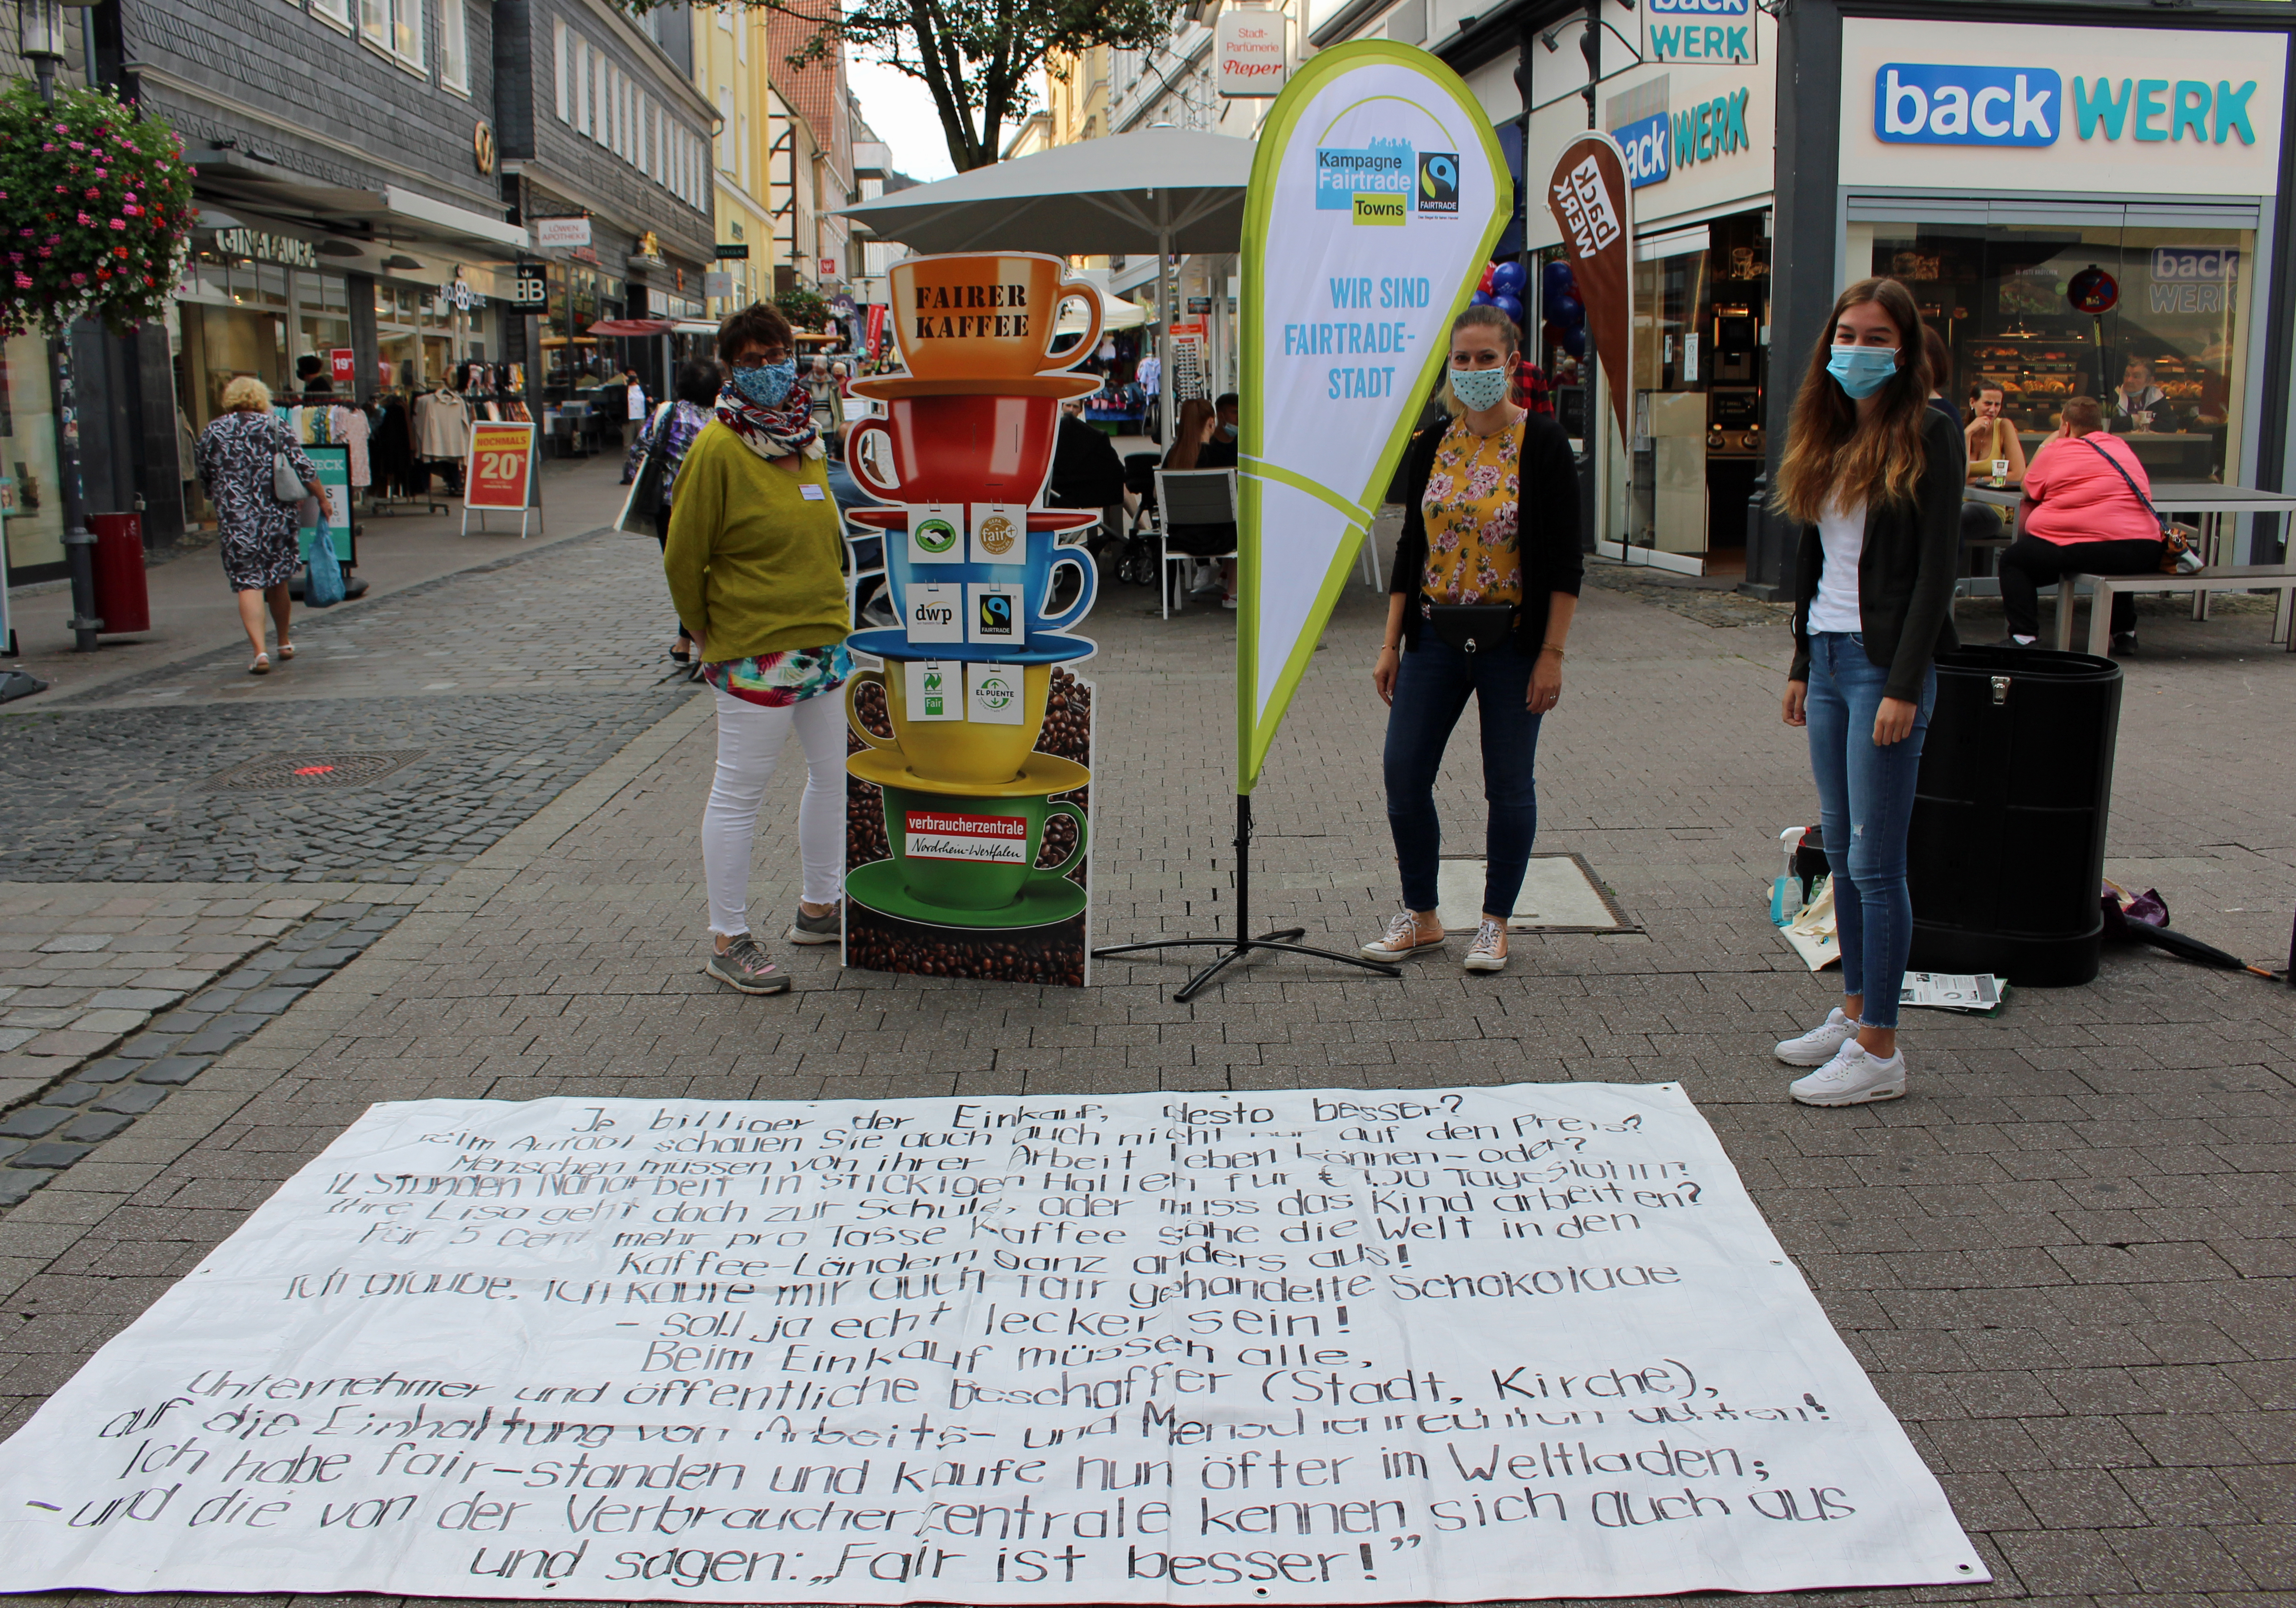 back
WERK
Stadt-
Parfümerie
Pieper
back WERK
back WERK
back
WERK
back
WERK
Kampagne
Fairtrade
Towns
FAIRTRADE
WIR SIND
FAIRTRADE-
STADT
GINA LAURA
LÖWEN
APOTHEKE
BB
19
NOCHMALS
20%
FAIRER
KAFFEE
fair+
dwp
FAIRTRADE
Fair
EL PUENTE
verbraucherzentrale
Nordrhein-Westfalen
Je billiger der Einkauf, desto besser?
Beim Autool schauen Sie doch auch nicht nur auf den Preis?
Menschen müssen von ihrer Arbeit leben können - oder?
12 Stunden Näharbeit in stickigen Hallen für € 1.50 Tageslohn?
Ihre Lisa geht doch zur Schule, oder muss das Kind arbeiten?
Für 5 Cent mehr pro Tasse Kaffee sähe die Welt in den
Kaffee-Ländern ganz anders aus!
Ich glaube, ich kaufe mir auch fair gehandelte Schokolade
- soll ja echt lecker sein!
Beim Einkauf müssen alle,
Unternehmer und öffentliche Beschaffer (Stadt, Kirche),
auf die Einhaltung von Arbeits- und Menschenrechten achten!
Ich habe fair-standen und kaufe nun öfter im Weltladen;
- und die von der Verbraucherzentrale kennen sich auch aus
und sagen: „Fair ist besser!”